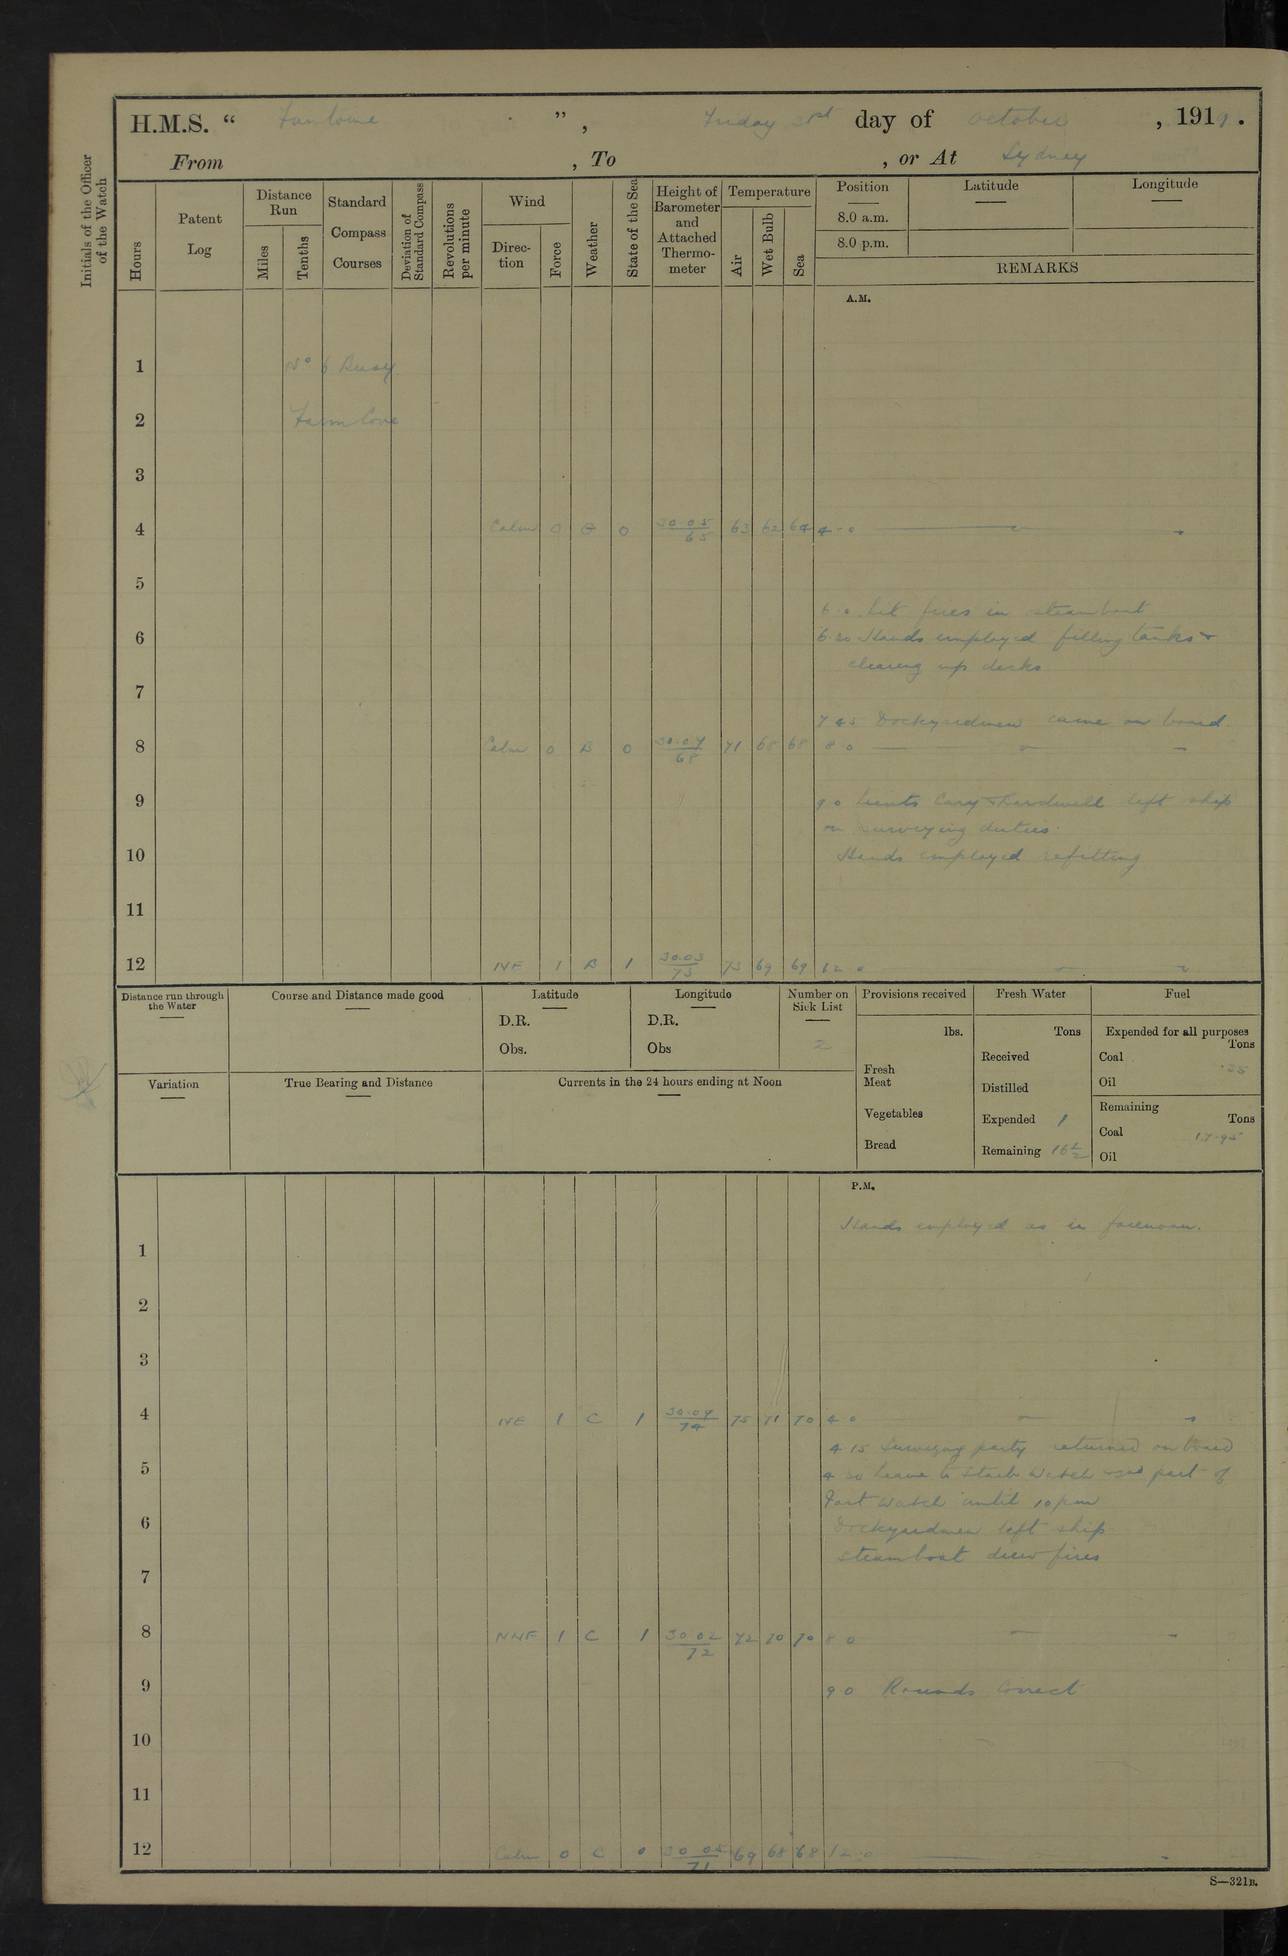 H.M.S. " Fantome ", Friday 31st day of October, 1919.
From , To , or At Sydney
Initials of the Officer of the Watch
Hours
Patent Log
Distance Run
Miles
Tenths
Standard Compass Courses
Deviation of Standard Compass
Revolutions per minute
Wind
Direction
Force
Weather
State of the Sea
Height of Barometer and Attached Thermometer
Temperature
Air
Wet Bulb
Sea
Position
8.0 a.m.
8.0 p.m.
Latitude
Longitude
REMARKS
A.M.
1 No 6 Buoy
2 Farm Cove
3
4 Calm 0 0 30.05/65 63 62 64 4-0
5
6.0 Lit fires in steamboat
6 6.20 Hands employed filling tanks &
clearing up decks
7
7 45 Dockyardmen came on board
8 Calm 0 B 0 30.07/68 71 68 68 8 0
9 9 0 Lieuts Cary & Hardwell left ship
on surveying duties.
10 Hands employed refitting
11
12 NE 1 B 1 30.03/73 73 69 69 12 0
Distance run through the Water
Course and Distance made good
Latitude
D.R.
Obs.
Longitude
D.R.
Obs
Number on Sick List
2
Provisions received
lbs.
Fresh Meat
Vegetables
Bread
Fresh Water
Tons
Received
Distilled
Expended 1
Remaining 16 1/2
Fuel
Expended for all purposes
Tons
Coal .25
Oil
Remaining
Tons
Coal 17.95
Oil
Variation
True Bearing and Distance
Currents in the 24 hours ending at Noon
P.M.
Hands employed as in forenoon.
1
2
3
4 NE 1 C 1 30.04/74 75 71 70 4 0
4 15 Surveying party returned on board
5 4 30 Leave to Starb Watch & 2nd part of
Port Watch until 10 pm
6 Dockyardmen left ship
steamboat drew fires
7
8 NNE 1 C 1 30 02/72 72 70 70 8 0
9 9 0 Rounds Correct
10
11
12 Calm 0 C 0 30 05/71 69 68 68 12.0
S—321B.